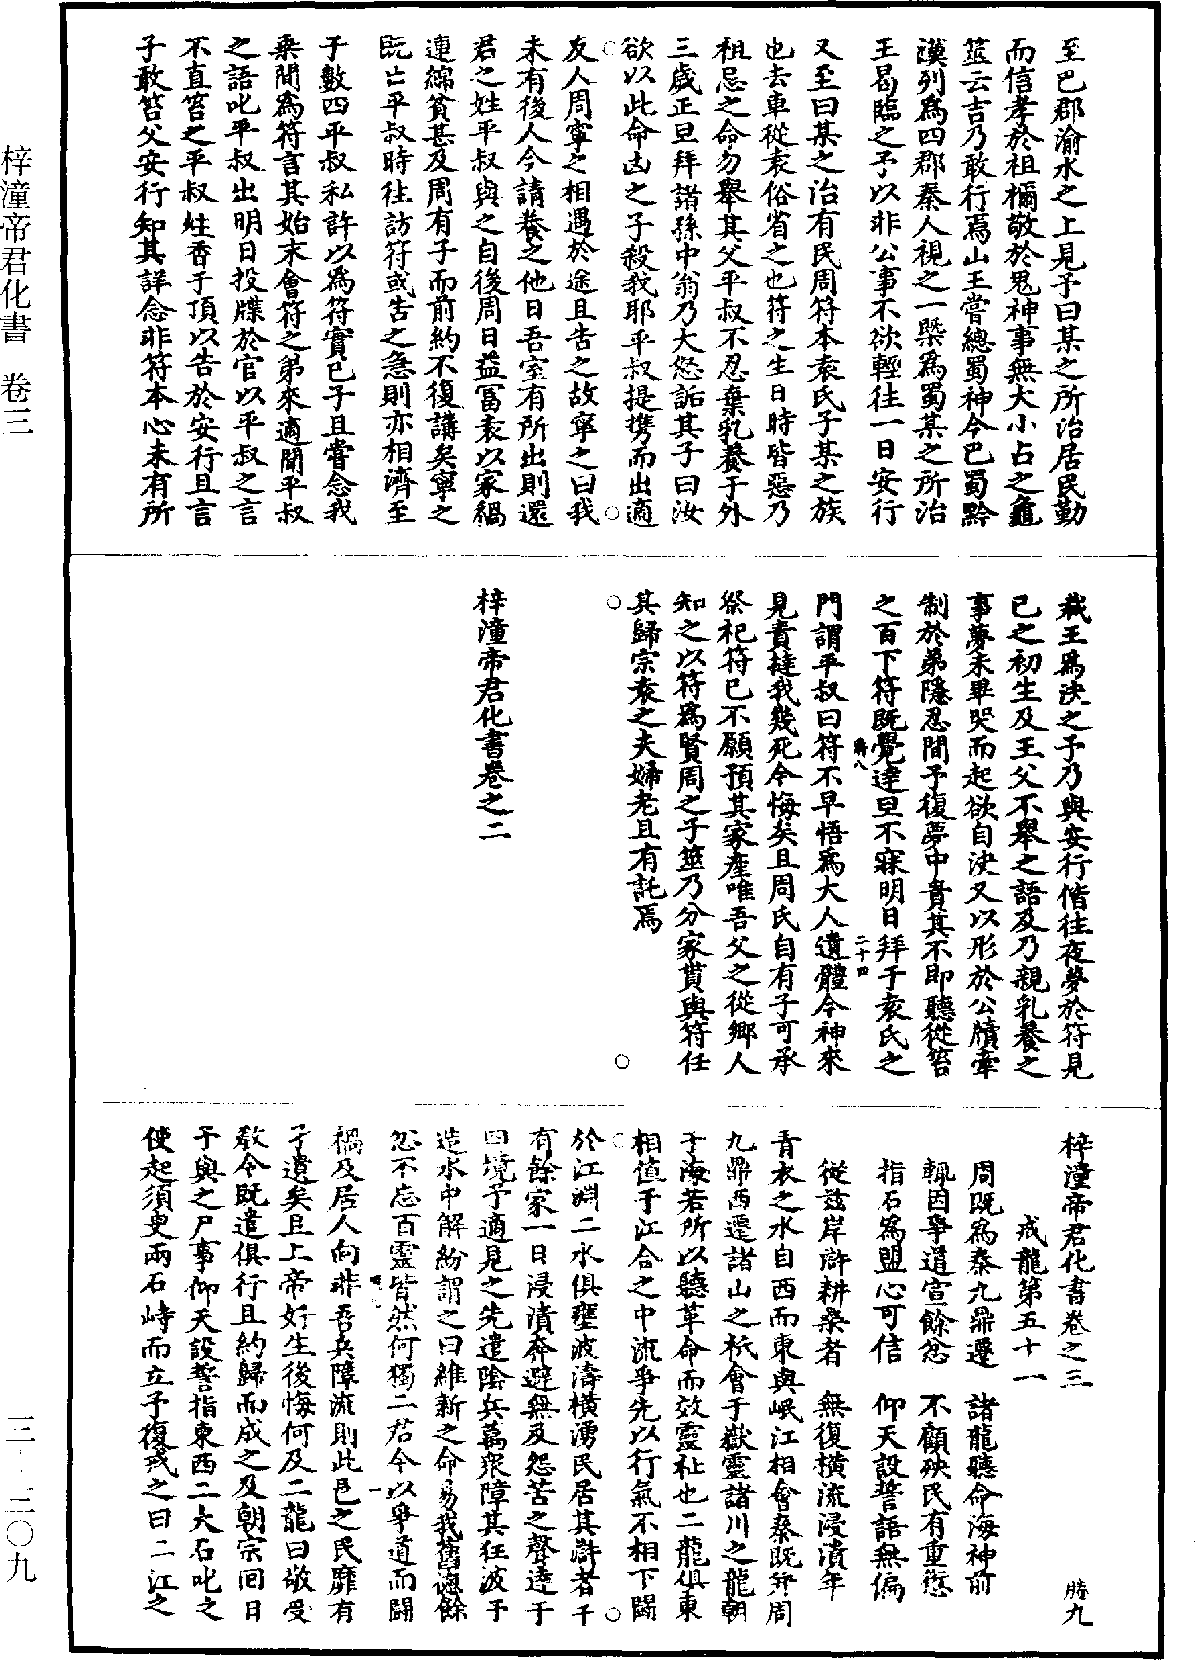 至巴郡渝水之上見予曰某之所治居民勤
而信孝於祖禰敬於鬼神事無大小占之龜
筮云吉乃敢行焉山王嘗總蜀神今巴蜀黔
漢列為四郡秦人視之一槩為蜀某之所治
王曷臨之予以非公事不欲輕往一日安行
又至曰某之治有民周符本袁氏子某之族
也去車從袁俗省之也符之生日時皆惡乃
祖忌之命勿舉其父平叔不忍棄乳養于外
三歲正旦拜諸孫中翁乃大怒詬其子曰汝
欲以此命凶之子殺我耶平叔提携而出適
友人周寧之相遇於途且告之故寧之曰我
未有後人今請養之他日吾室有所出則還
君之姓平叔與之自後周日益冨袁以家禍
連綿貧甚及周有子而前約不復講矣寧之
既亡平叔時往訪符或告之急則亦相濟至
于數四平叔私許以為符實已子且嘗念我
乗間為符言其始末會符之弟來適聞平叔
之語叱平叔出明日投牒於官以平叔之言
不直笞之平叔姓香于頂以告於安行且言
子敢笞父安行知其詳念非符本心未有所
裁王為決之予乃與安行偕往夜夢於符見
已之初生及王父不舉之語及乃親乳養之
事夢未畢哭而起欲自決又以形於公牘牽
制於弟隱忍間予復夢中責其不即聽從笞
之百下符既覺達旦不寐明日拜于袁氏之
門謂平叔曰符不早悟為大人遺體今神來
見責撻我幾死今悔矣且周氏自有子可承
祭祀符已不願預其家產唯吾父之從鄉人
知之以符為賢周之子筮乃分家貲與符任
其歸宗袁之夫婦老且有託焉
梓潼帝君化書卷之二
二十四
梓潼帝君化書卷之三
勝九
戒龍第五十一
周既為秦九鼎遷　諸龍聽命海神前
輒因爭道宣餘忿　不顧殃民有重愆
指石為盟心可信　仰天設誓語無偏
從兹岸滸耕桑者　無復橫流浸漬年
青衣之水自西而東與岷江相會秦既并周
九鼎西遷諸山之祇會于嶽靈諸川之龍朝
于海若所以聽革命而效靈祉也二龍俱東
相值于江合之中流爭先以行氣不相下鬪
於江淵二水俱壅波濤橫湧民居其滸者千
有餘家一日浸漬奔避無及怨苦之聲達于
四境予適見之先遣陰兵萬衆障其狂波予
造水中解紛謂之曰維新之命易我舊德餘
忿不忘百靈皆然何獨二君今以爭道而鬪
禍及居人向非吾兵障流則此邑之民靡有
孑遺矣且上帝好生後悔何及二龍曰敬受
教令既遣俱行且約歸而成之及朝宗囘日
予與之尸事仰天設誓指東西二大石叱之
使起須臾兩石峙而立予復戒之曰二江之
梓潼帝君化書　卷三
三－三〇九